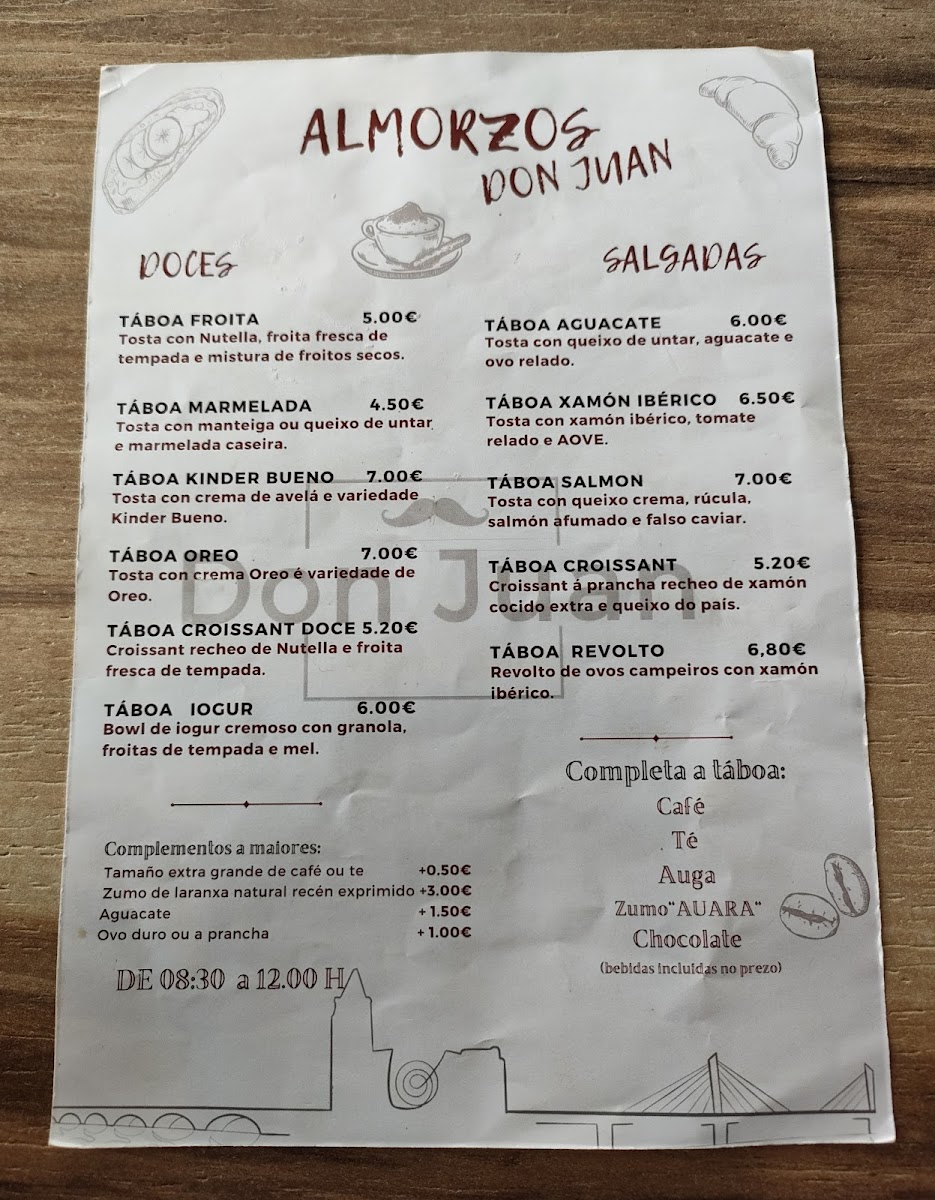 ALMORZOS
DON JUAN
DOCES
TÁBOA FROITA 5.00€
Tosta con Nutella, froita fresca de
tempada e mistura de froitos secos.
TÁBOA MARMELADA 4.50€
Tosta con manteiga ou queixo de untar
e marmelada caseira.
TÁBOA KINDER BUENO 7.00€
Tosta con crema de avelá e variedade
Kinder Bueno.
TÁBOA OREO 7.00€
Tosta con crema Oreo é variedade de
Oreo.
TÁBOA CROISSANT DOCE 5.20€
Croissant recheo de Nutella e froita
fresca de tempada.
TÁBOA IOGUR 6.00€
Bowl de iogur cremoso con granola,
froitas de tempada e mel.
Complementos a maiores:
Tamaño extra grande de café ou te +0.50€
Zumo de laranxa natural recén exprimido +3.00€
Aguacate +1.50€
Ovo duro ou a prancha +1.00€
DE 08:30 a 12.00 H
SALGADAS
TÁBOA AGUACATE 6.00€
Tosta con queixo de untar, aguacate e
ovo relado.
TÁBOA XAMÓN IBÉRICO 6.50€
Tosta con xamón ibérico, tomate
relado e AOVE.
TÁBOA SALMON 7.00€
Tosta con queixo crema, rúcula,
salmón afumado e falso caviar.
TÁBOA CROISSANT 5.20€
Croissant á prancha recheo de xamón
cocido extra e queixo do país.
TÁBOA REVOLTO 6,80€
Revolto de ovos campeiros con xamón
ibérico.
Completa a táboa:
Café
Té
Auga
Zumo"AUARA"
Chocolate
(bebidas incluidas no prezo)
Don Juan